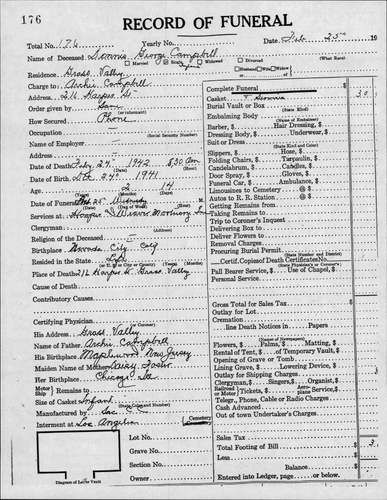 176
RECORD OF FUNERAL
Total No. 176 Yearly No. Date Feb. 25th 19
Name of Deceased Dennis George Campbell
Married Single Divorced (What Race)
Husband Widow Widower or
Residence Grass Valley
Charge to Archie Campbell
Address 216 Harper St
Order given by
How Secured Phone (or informant)
Occupation (Social Security Number)
Name of Employer
Address
Date of Death Feb. 24 1942 8:30 am
Date of Birth 1941
Age 2 14
(Years) (Months) (Days)
Date of Funeral Feb 25
(Date) (Day of Week) (Hour)
Services at Hooper & Weaver Mortuary
Clergyman (Address)
Religion of the Deceased
Birthplace Nevada City Calif
Resided in the State Life
(or U. S.) (City or County)
Place of Death 216 Harper St. Grass Valley
Cause of Death
Contributory Causes
Certifying Physician (or Coroner)
His Address Grass Valley
Name of Father Archie Campbell
His Birthplace Maplewood New Jersey
Maiden Name of Mother Foster
Her Birthplace Chicago
Motor Ship Remains to
Size of Casket Infant
Manufactured by
Interment at Los Angeles Cemetery
Diagram of Lot or Vault
Lot No.
Grave No.
Section No.
Owner
Complete Funeral
Casket & Service
Burial Vault or Box (State Kind)
Embalming Body (Name of Embalmer)
Barber, $ Hair Dressing, $
Dressing Body, $ Underwear, $
Suit or Dress (State Kind and Color)
Slippers, $ Hose, $
Folding Chairs, $ Tarpaulin, $
Candelabrum, $ Candles, $
Door Spray, $ Gloves, $
Funeral Car, $ Ambulance, $
Limousines to Cemetery @ $
Autos to R. R. Station @ $
Getting Remains from
Taking Remains to
Trip to Coroner's Inquest
Delivering Box to
Deliver Flowers to
Removal Charges
Procuring Burial Permit
(State Number and District)
Certif. Copies of Death Certificates No.
(State Physician's or Coroner's)
Pall Bearer Service, $ Use of Chapel, $
Personal Service
Gross Total for Sales Tax $
Outlay for Lot
Cremation
line Death Notices in Papers
(Name of Newspapers)
Flowers, $ Palms, $ Matting, $
Rental of Tent, $ of Temporary Vault, $
Opening of Grave or Tomb
Lining Grave, $ Lowering Device, $
Outlay for Shipping Charges
Clergyman, $ Singers, $ Organist, $
Railroad Motor Tickets, $ Aero plane Service, $
Telegr., Phone, Cable or Radio Charges
Cash Advanced
Out of town Undertaker's Charges
Sales Tax $
Total Footing of Bill $
Less
Balance $
Entered into Ledger, page or below.